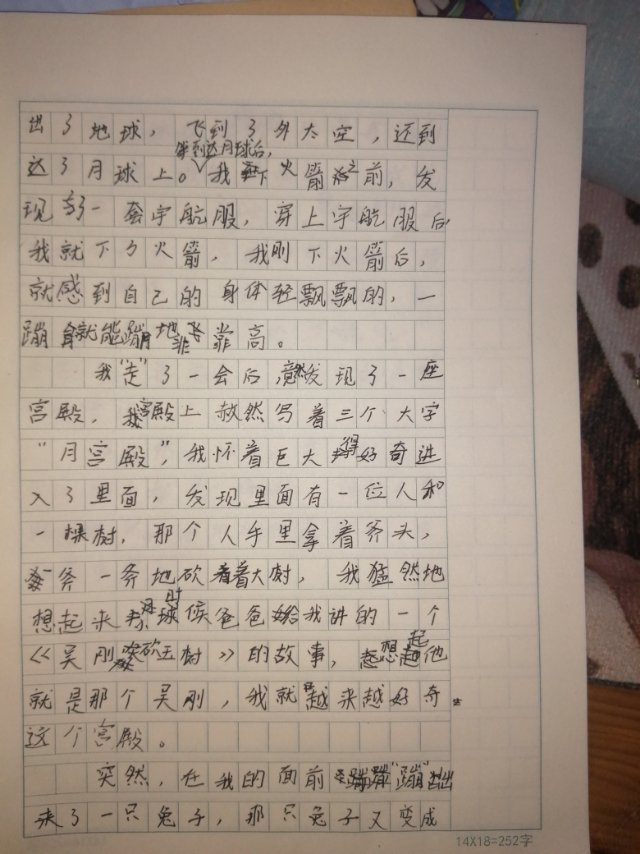 出了地球，飞到了外太空，还到
达了月球上。我等到达月球后，下火箭之前，发
现了一套宇航服，穿上宇航服后
我就下了火箭，我刚下火箭后，
就感到自己的身体轻飘飘的，一
蹦就能蹦地非常高。
我"走"了一会后，竟然发现了一座
宫殿，宫殿上赫然写着三个大字
"月宫殿"，我怀着巨大得好奇进
入了里面，发现里面有一位人和
一棵树，那个人手里拿着斧头，
一斧一斧地砍着大树，我猛然地
想起来小时候爸爸给我讲的一个
《吴刚砍玉树》的故事，想起他
就是那个吴刚，我就越来越好奇
这个宫殿。
突然，在我的面前"蹦"出
来了一只兔子，那只兔子又变成
14X18=252字